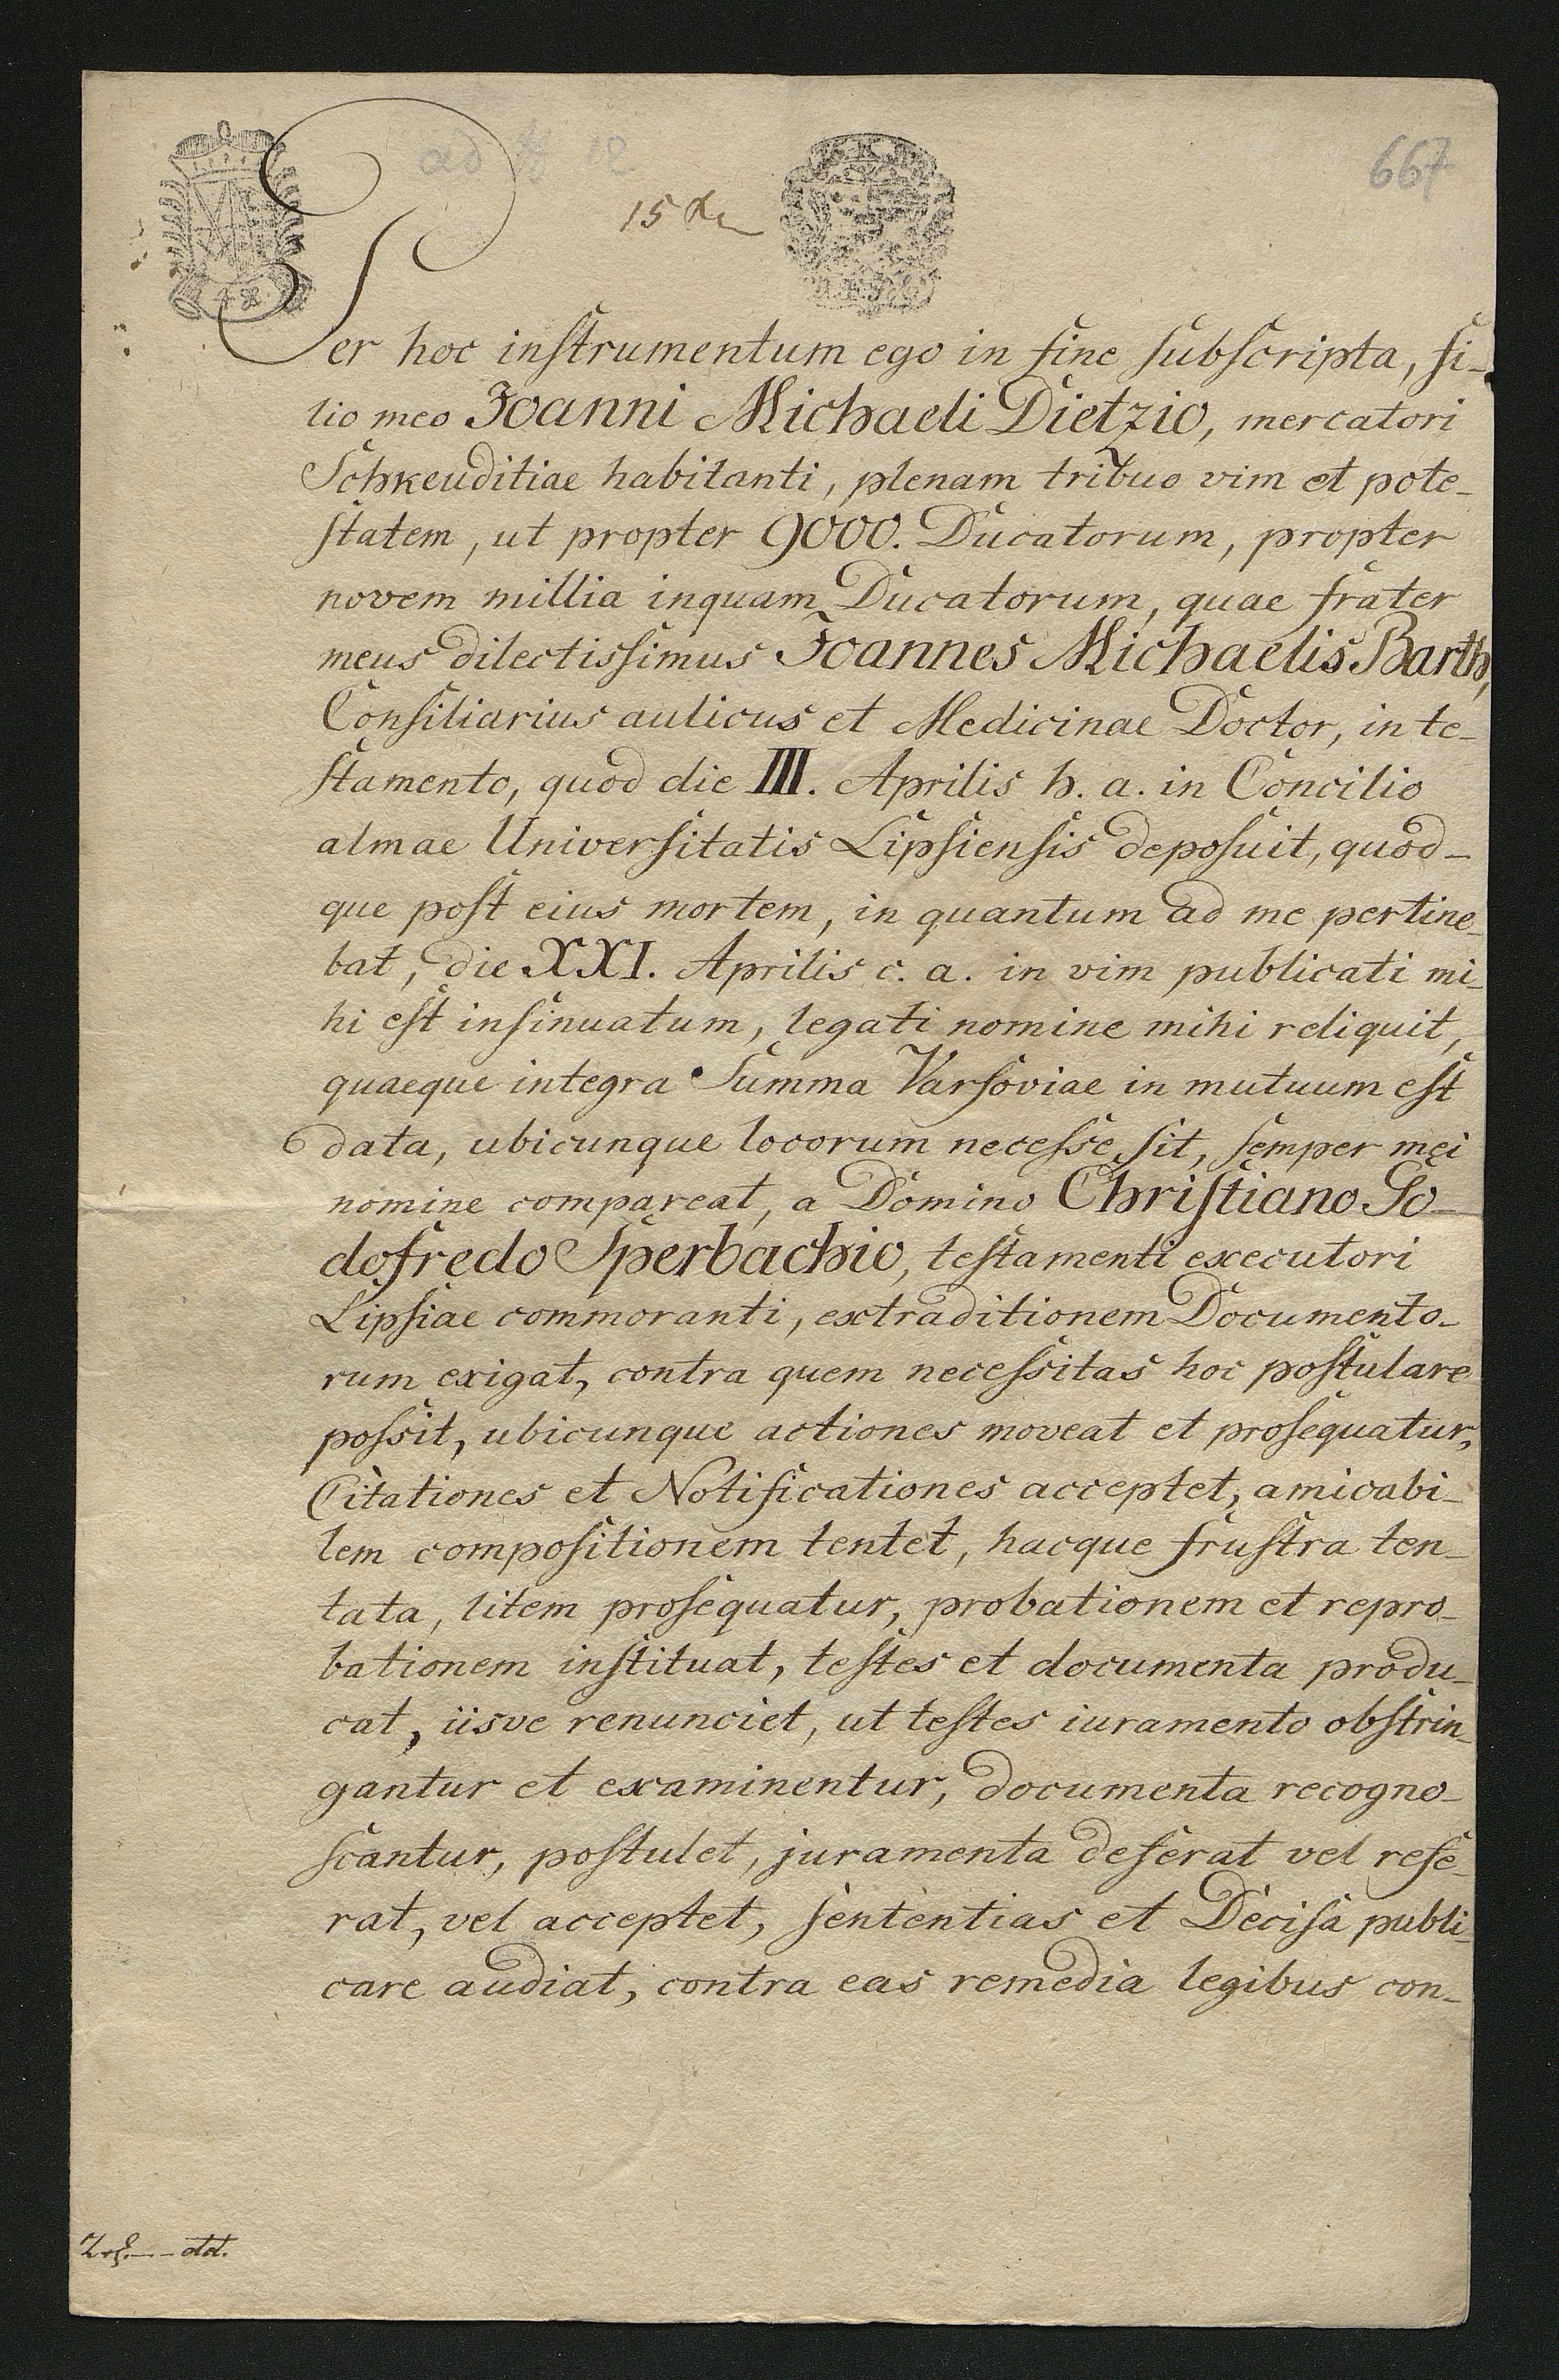 667
Per hoc inſtrumentum ego in fine ſubſcripta, fi-
lio meo Joanni Michaeli Dietzio, mercatori
Schkeuditiae habitanti, plenam tribuo vim et pote-
ſtatem, ut propter 9000. Ducatorum, propter
novem millia inquam Ducatorum, quae frater
meus dilectisſimus Joannes Michaelis Barth,
Conſiliarius aulicus et Medicinae Doctor, in te-
ſtamento, quod die III. Aprilis h. a. in Concilio
almae Univerſitatis Lipſienſis depoſuit, quod-
que poſt eius mortem, in quantum ad me pertine-
bat, die XXI. Aprilis c. a. in vim publicati mi-
hi eſt inſinuatum, legati nomine mihi reliquit,
quaeque integra Summa Varſoviae in mutuum eſt
data, ubicunque locorum neceſse ſit, ſemper mei
nomine compareat, a Domino Chriſtiano Go-
dofredo Sperbachio, teſtamenti executori
Lipſiae commoranti, extraditionem Documento-
rum exigat, contra quem neceſsitas hoc poſtulare
poſsit, ubicunque actiones moveat et proſequatur,
Citationes et Notificationes acceptet, amicabi-
lem compoſitionem tentet, hacque fruſtra ten-
tata, litem proſequatur, probationem et repro-
bationem inſtituat, teſtes et documenta produ-
cat, iisve renunciet, ut teſtes iuramento obſtrin-
gantur et examinentur, documenta recogno-
ſcantur, poſtulet, juramenta deferat vel refe-
rat, vel acceptet, ſententias et Deciſa publi-
care audiat, contra eas remedia legibus con-